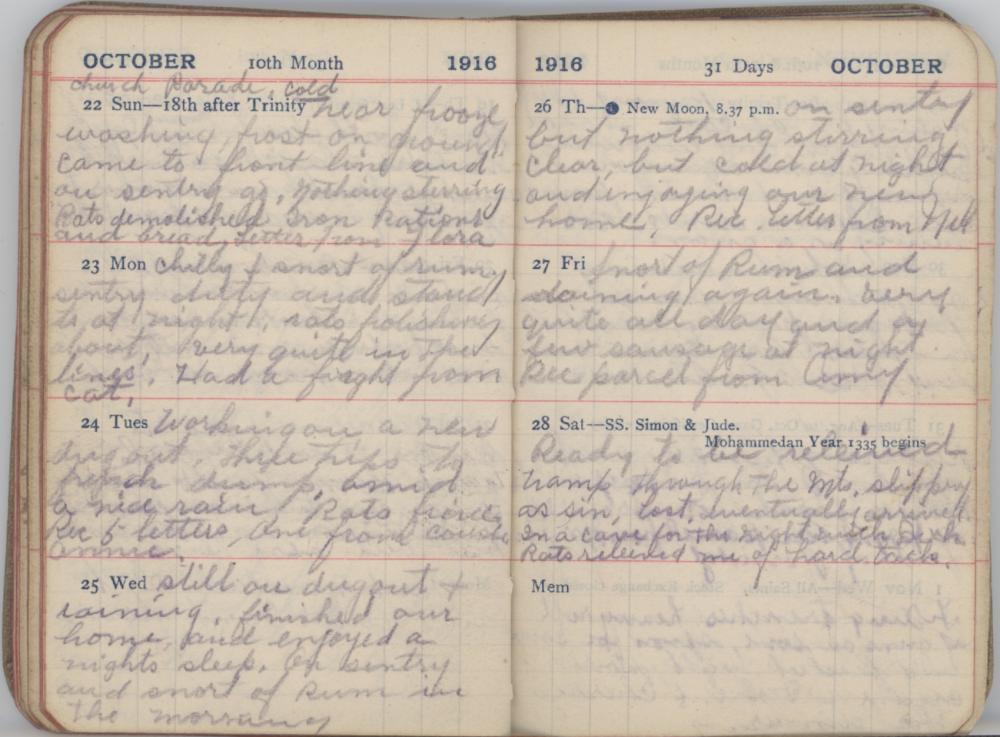 OCTOBER 10th Month 1916
church Parade, cold
22 Sun—18th after Trinity near frooze
washing, frost on ground
came to front line and
on sentry go, Nothing stirring
Rats demolished Iron Rations
and bread, Letter from Flora
23 Mon chilly & snort of rum,
sentry duty and stand
to at night, rats polishing
about, very quite in the
lines, Had a fright from
cat,
24 Tues Working on a new
dug out, three trips to
french dump, amid
a nice rain, Rats fierce
Rec 5 letters, one from Cousin
Annie.
25 Wed still on dugout +
raining, finished our
home, and enjoyed a
nights sleep, on sentry
and snort of Rum in
the morning
1916 31 Days OCTOBER
26 Th— New Moon, 8.37 p.m. on sentry
but nothing stirring
clear, but cold at night
and enjoying our new
home, Rec letter from Nell
27 Fri Snort of Rum and
raining again. very
quite all day and a
few sausage at night
Rec parcel from Amy
28 Sat—SS. Simon & Jude.
Mohammedan Year 1335 begins
Ready to be relieved
tramp through the Mts, slippery
as sin, lost, eventually arrived
In a cave for the night with
Rats relieved me of hard tack.
Mem